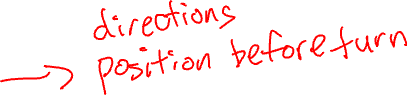 directions
position before turn